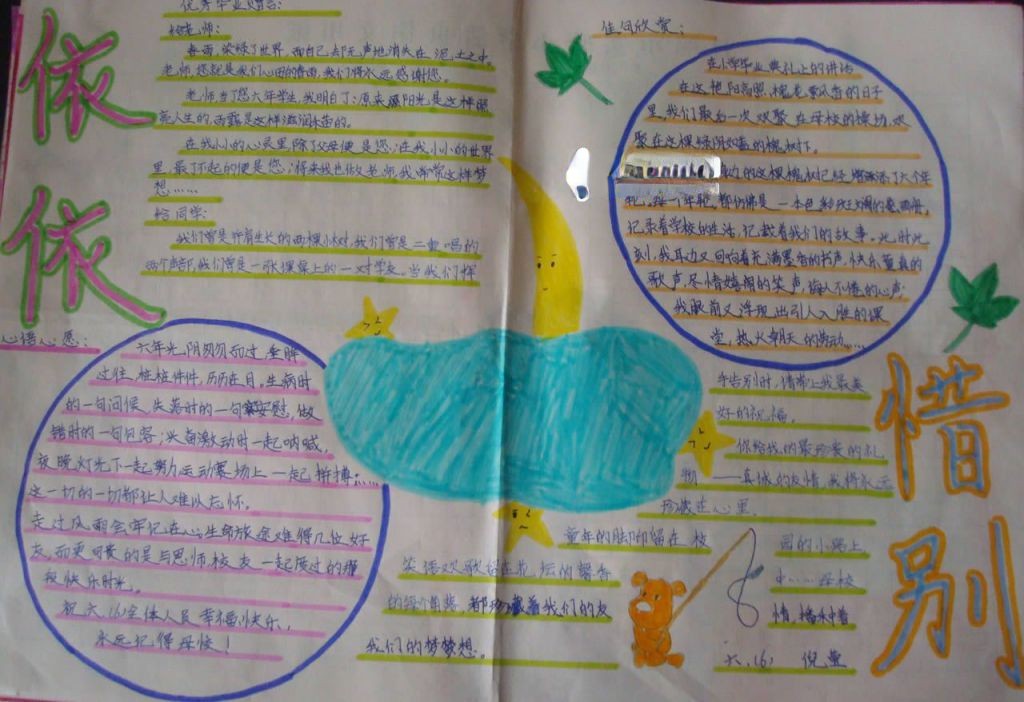 依依
惜别
优秀毕业赠言:
给老师:
春雨,染绿了世界,而自己却无声地消失在泥土之中。
老师,您就是我们心田的春雨,我们将永远感谢您。
老师当了您六年学生,我明白了:原来阳光是这样照
亮人生的,雨露是这样滋润禾苗的。
在我小的心灵里,除了父母便是您;在我小小的世界
里,最了不起的便是您;将来我也做老师,我常常这样梦
想……
给同学:
我们曾是并肩生长的两棵小树,我们曾是二重唱的
两个声部,我们曾是一张课桌上的一对学友。当我们挥
手告别时,请带上我最美
好的祝福。
你给我的最珍贵的礼
物——真诚的友情,我将永远
珍藏在心里。
童年的脚印留在校园的小路上
笑语欢歌留在花坛的馨香中……母校
的每个角落,都珍藏着我们的友情,播种着
我们的梦梦想。
六.(6)
心语心愿:
六年光阴匆匆而过,重眸
过往,桩桩件件,历历在目。生病时
的一句问候,失落时的一句安慰,做
错时的一句包容;兴奋激动时一起呐喊,
夜晚灯光下一起努力运动赛场上一起拼搏……
这一切的一切都让人难以忘怀。
走过风雨会牢记在心;生命旅途难得几位好
友,而更可贵的是与恩师校友一起度过的
快乐时光。
祝六.(6)全体人员幸福快乐,
永远记得母校!
佳句欣赏:
在小学毕业典礼上的讲话
在这艳阳高照,槐花飘香的日子
里,我们最后一次欢聚在母校的操场,欢
聚在这棵绿阴如盖的槐树下。
的这棵槐树已经增添了六个年
轮。每一个年轮,都仿佛是一本色彩斑斓的画册,
记录着学校的生活,记载着我们的故事。此时此
刻,我耳边又回响着充满墨香的书声,快乐童真的
歌声,尽情嬉闹的笑声,诲人不倦的心声;
我眼前又浮现出引人入胜的课
堂,热火朝天的劳动……